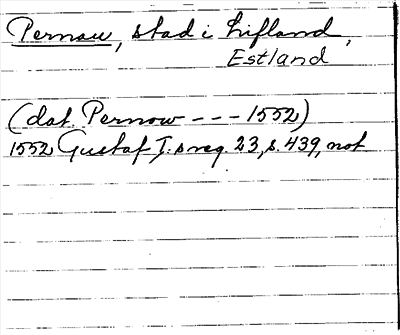 Pernau, stad i Lifland,
Estland
(dat. Pernow --- 1552)
1552 Gustaf I:s reg. 23, s. 439, not